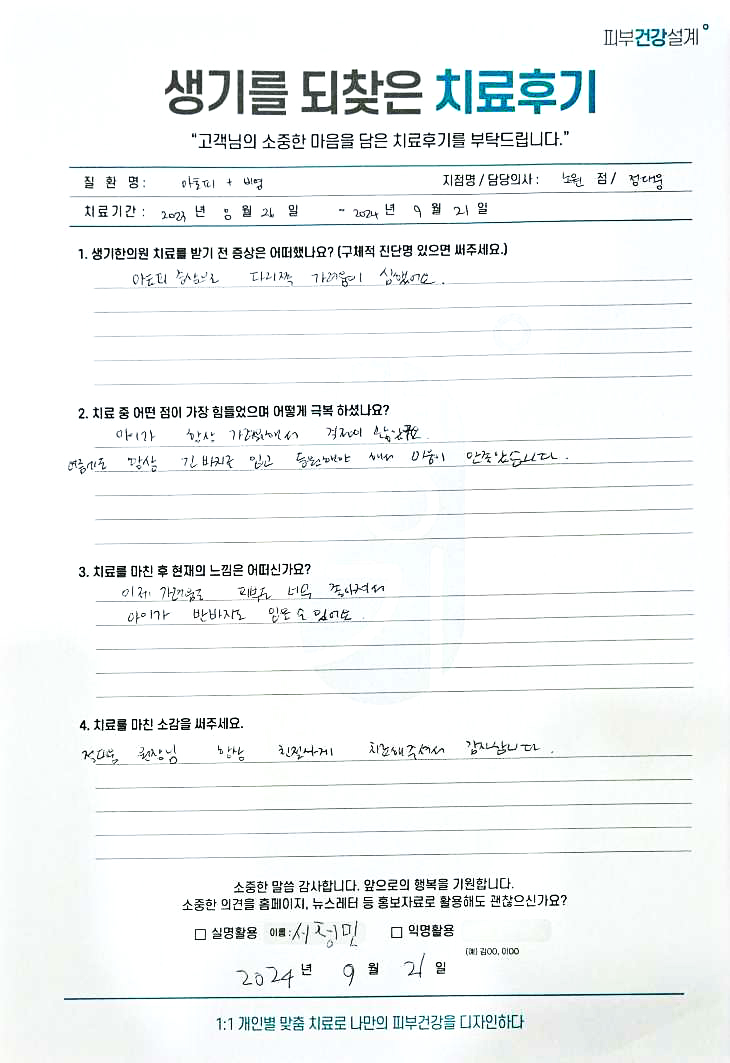 피부건강설계
생기를 되찾은 치료후기
“고객님의 소중한 마음을 담은 치료후기를 부탁드립니다.”
질 환 명 : 아토피 + 비염 지점명 / 담당의사 : 노원 점 / 정대웅
치료기간 : 2023 년 8 월 26 일 ~ 2024 년 9 월 21 일
1. 생기한의원 치료를 받기 전 증상은 어떠했나요? (구체적 진단명 있으면 써주세요.)
아토피 증상으로 다리쪽 가려움이 심했어요.
2. 치료 중 어떤 점이 가장 힘들었으며 어떻게 극복 하셨나요?
아이가 항상 가려워해서 걱정이 많았구요.
여름에도 항상 긴바지로 입고 등원해야 해서 마음이 안좋았습니다.
3. 치료를 마친 후 현재의 느낌은 어떠신가요?
이제 가려움도 피부도 너무 좋아져서
아이가 반바지도 입을 수 있어요.
4. 치료를 마친 소감을 써주세요.
정대웅 원장님 항상 친절하게 치료해주셔서 감사합니다.
소중한 말씀 감사합니다. 앞으로의 행복을 기원합니다.
소중한 의견을 홈페이지, 뉴스레터 등 홍보자료로 활용해도 괜찮으신가요?
실명활용 이름 : 서정민 익명활용
(예) 김OO, 이OO
2024 년 9 월 21 일
1:1 개인별 맞춤 치료로 나만의 피부건강을 디자인하다